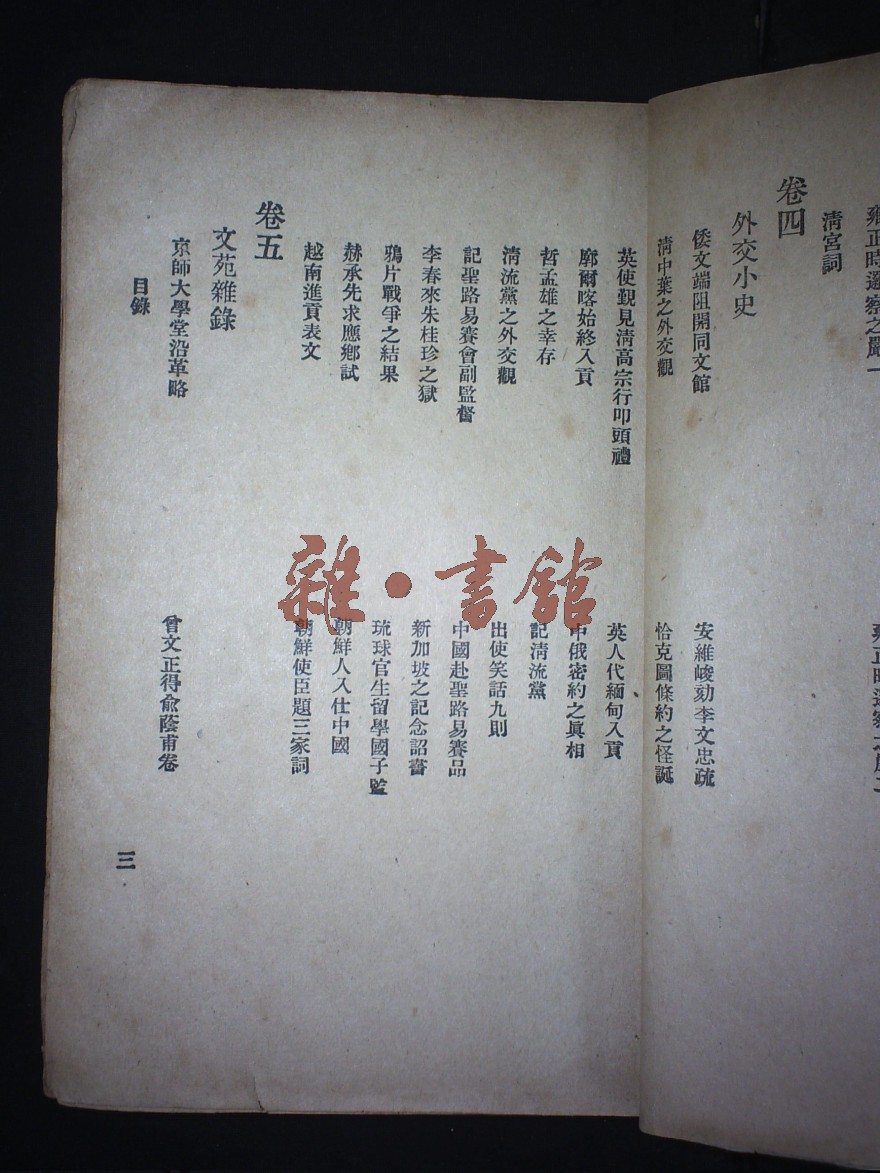 雍正時邏察之嚴一
雍正時邏察之嚴二
淸宮詞
卷四
外交小史
倭文端阻開同文館
安維峻劾李文忠疏
淸中葉之外交觀
恰克圖條約之怪誕
英使覲見淸高宗行叩頭禮
英人代緬甸入貢
廓爾喀始終入貢
中俄密約之眞相
哲孟雄之幸存
記淸流黨
淸流黨之外交觀
出使笑話九則
記聖路易賽會副監督
中國赴聖路易賽品
李春來朱桂珍之獄
新加坡之記念詔書
鴉片戰爭之結果
琉球官生留學國子監
赫承先求應鄕試
朝鮮人入仕中國
越南進貢表文
朝鮮使臣題三家詞
卷五
文苑雜錄
京師大學堂沿革略
曾文正得兪蔭甫卷
目錄
三
雜·書館